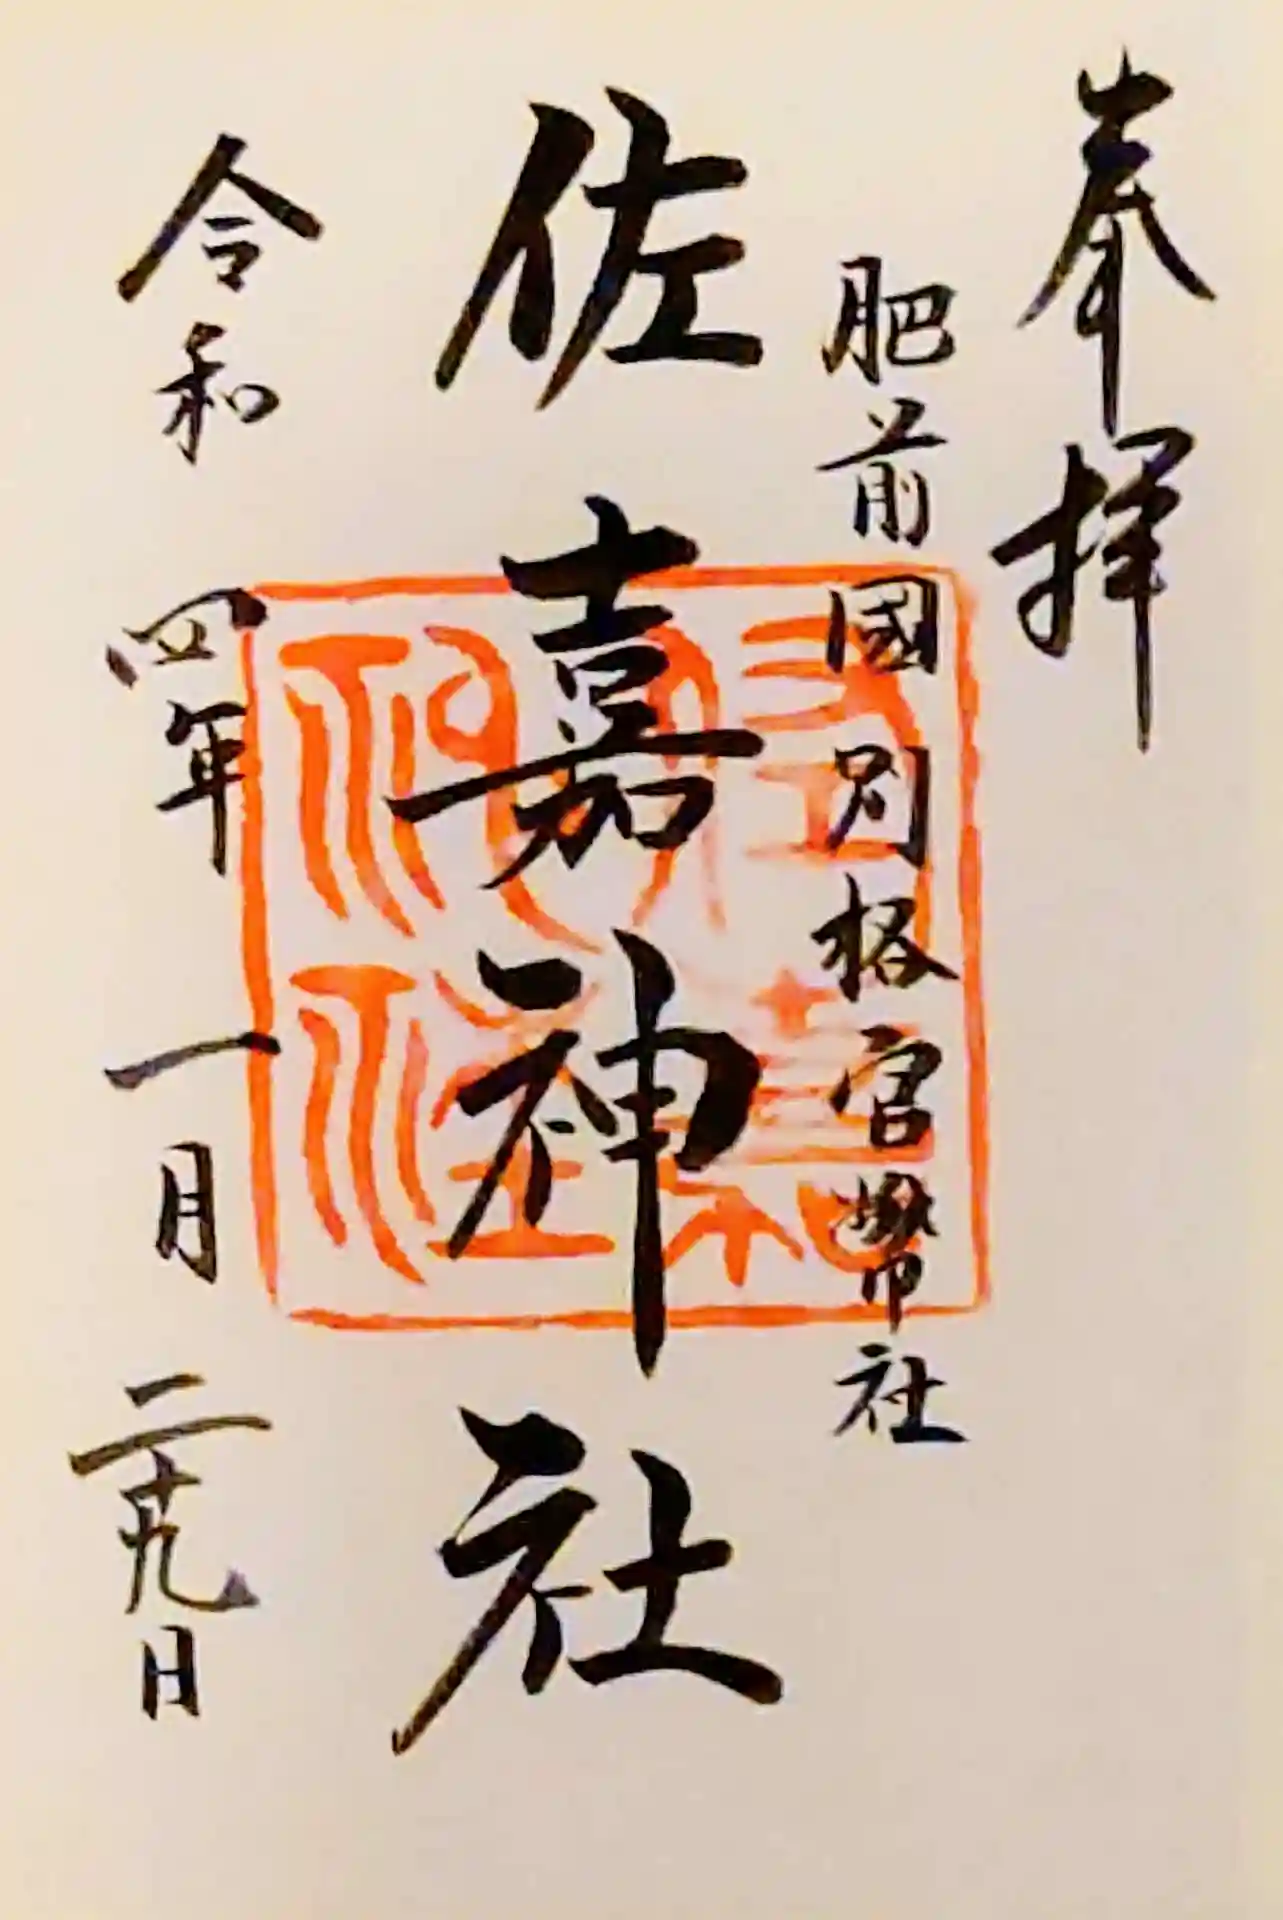 奉拝
肥前國別格官幣社
佐嘉神社
令和四年一月二十九日